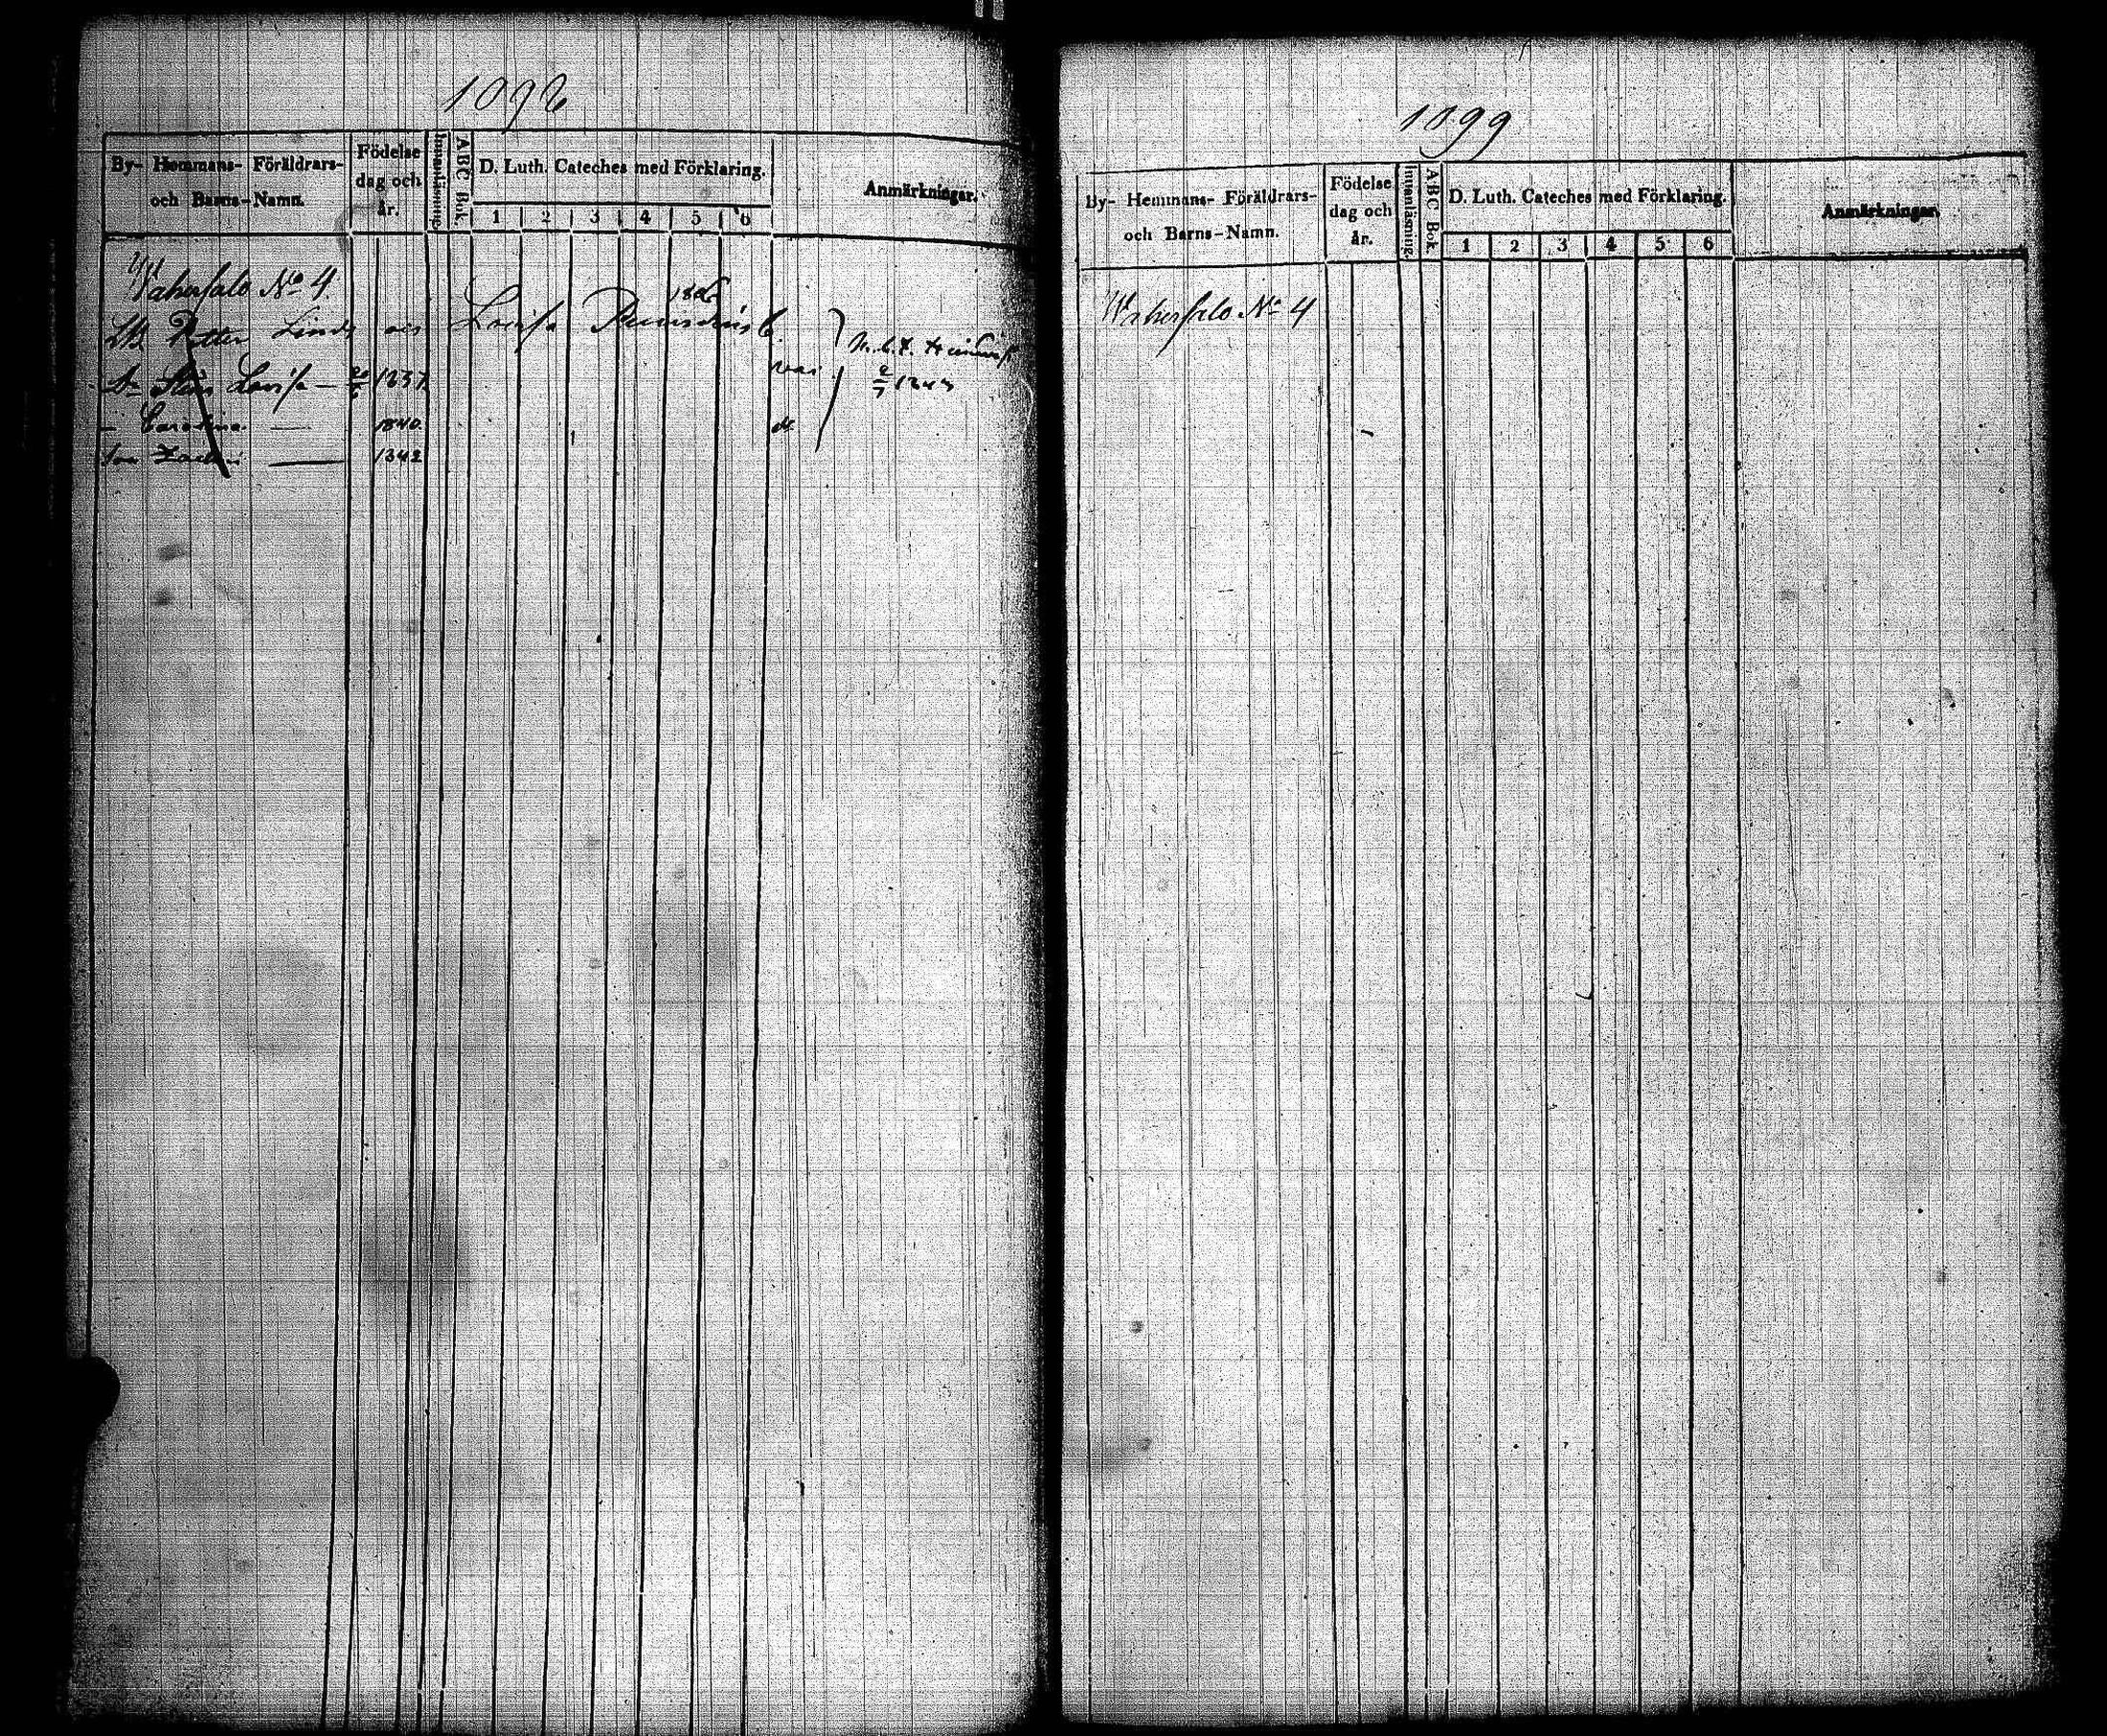 1098
By- Hemmans- Föräldrars-
och Barns-Namn.
Födelse
dag och
år.
Innanläsning.
ABC Bok.
D. Luth. Cateches med Förklaring.
1 2 3 4 5 6
Anmärkningar.
Wahersalo No 4
1806
Petter Lovisa
Lovisa 1837
Carolina 1840
1842
1843
1099
By- Hemmans- Föräldrars-
och Barns-Namn.
Födelse
dag och
år.
Innanläsning.
ABC Bok.
D. Luth. Cateches med Förklaring.
1 2 3 4 5 6
Anmärkningar.
Wahersalo No 4